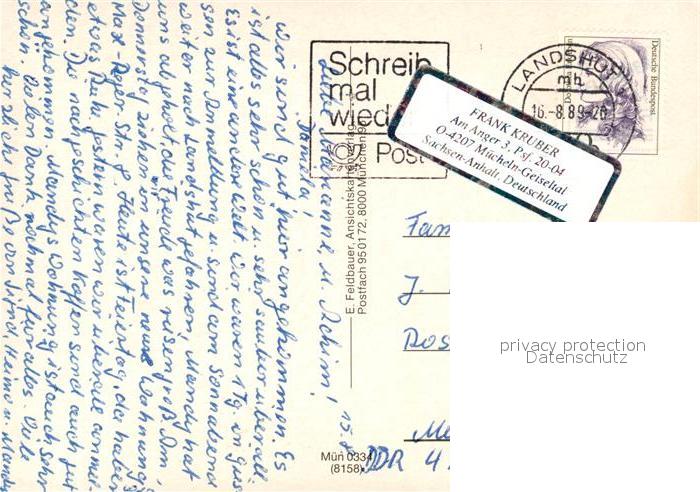 Liebe Marianne, u. Achim!
Daniela!
Wir sind gut hier angekommen. Es
ist alles sehr schön u. sehr sauber überall.
Es ist eine andere Welt. Wir waren 1 Tg. in Gies
sen zur
weiter nach Landshut gefahren, Mandy hat
uns abgeholt, die Freude war riesengroß. Am
Donnerstag ziehen wir in unsere neue Wohnung
Max-Reger-Str. Heute ist Feiertag, da haben
etwas Ruh
den. Die nachgeschickten Koffer sind auch gut
angekommen. Mandys Wohnung ist auch sehr
schön. Vielen Dank nochmal für alles. Viele
herzliche Grüße
Heimo u. Mandy
15.8.
Schreib
mal
wied
Post
LANDSHUT
mh
16.-8.89-20
Deutsche Bundespost
FRANK KRUBER
Am Anger 3, Psf. 20-04
O-4207 Mücheln-Geiseltal
Sachsen-Anhalt, Deutschland
E. Feldbauer, Ansichtskartenverlag
Postfach 95 01 72, 8000 München 9
Fam
J.
Pos
Me
DDR 4
Mün 0334
(8158)
privacy protection
Datenschutz